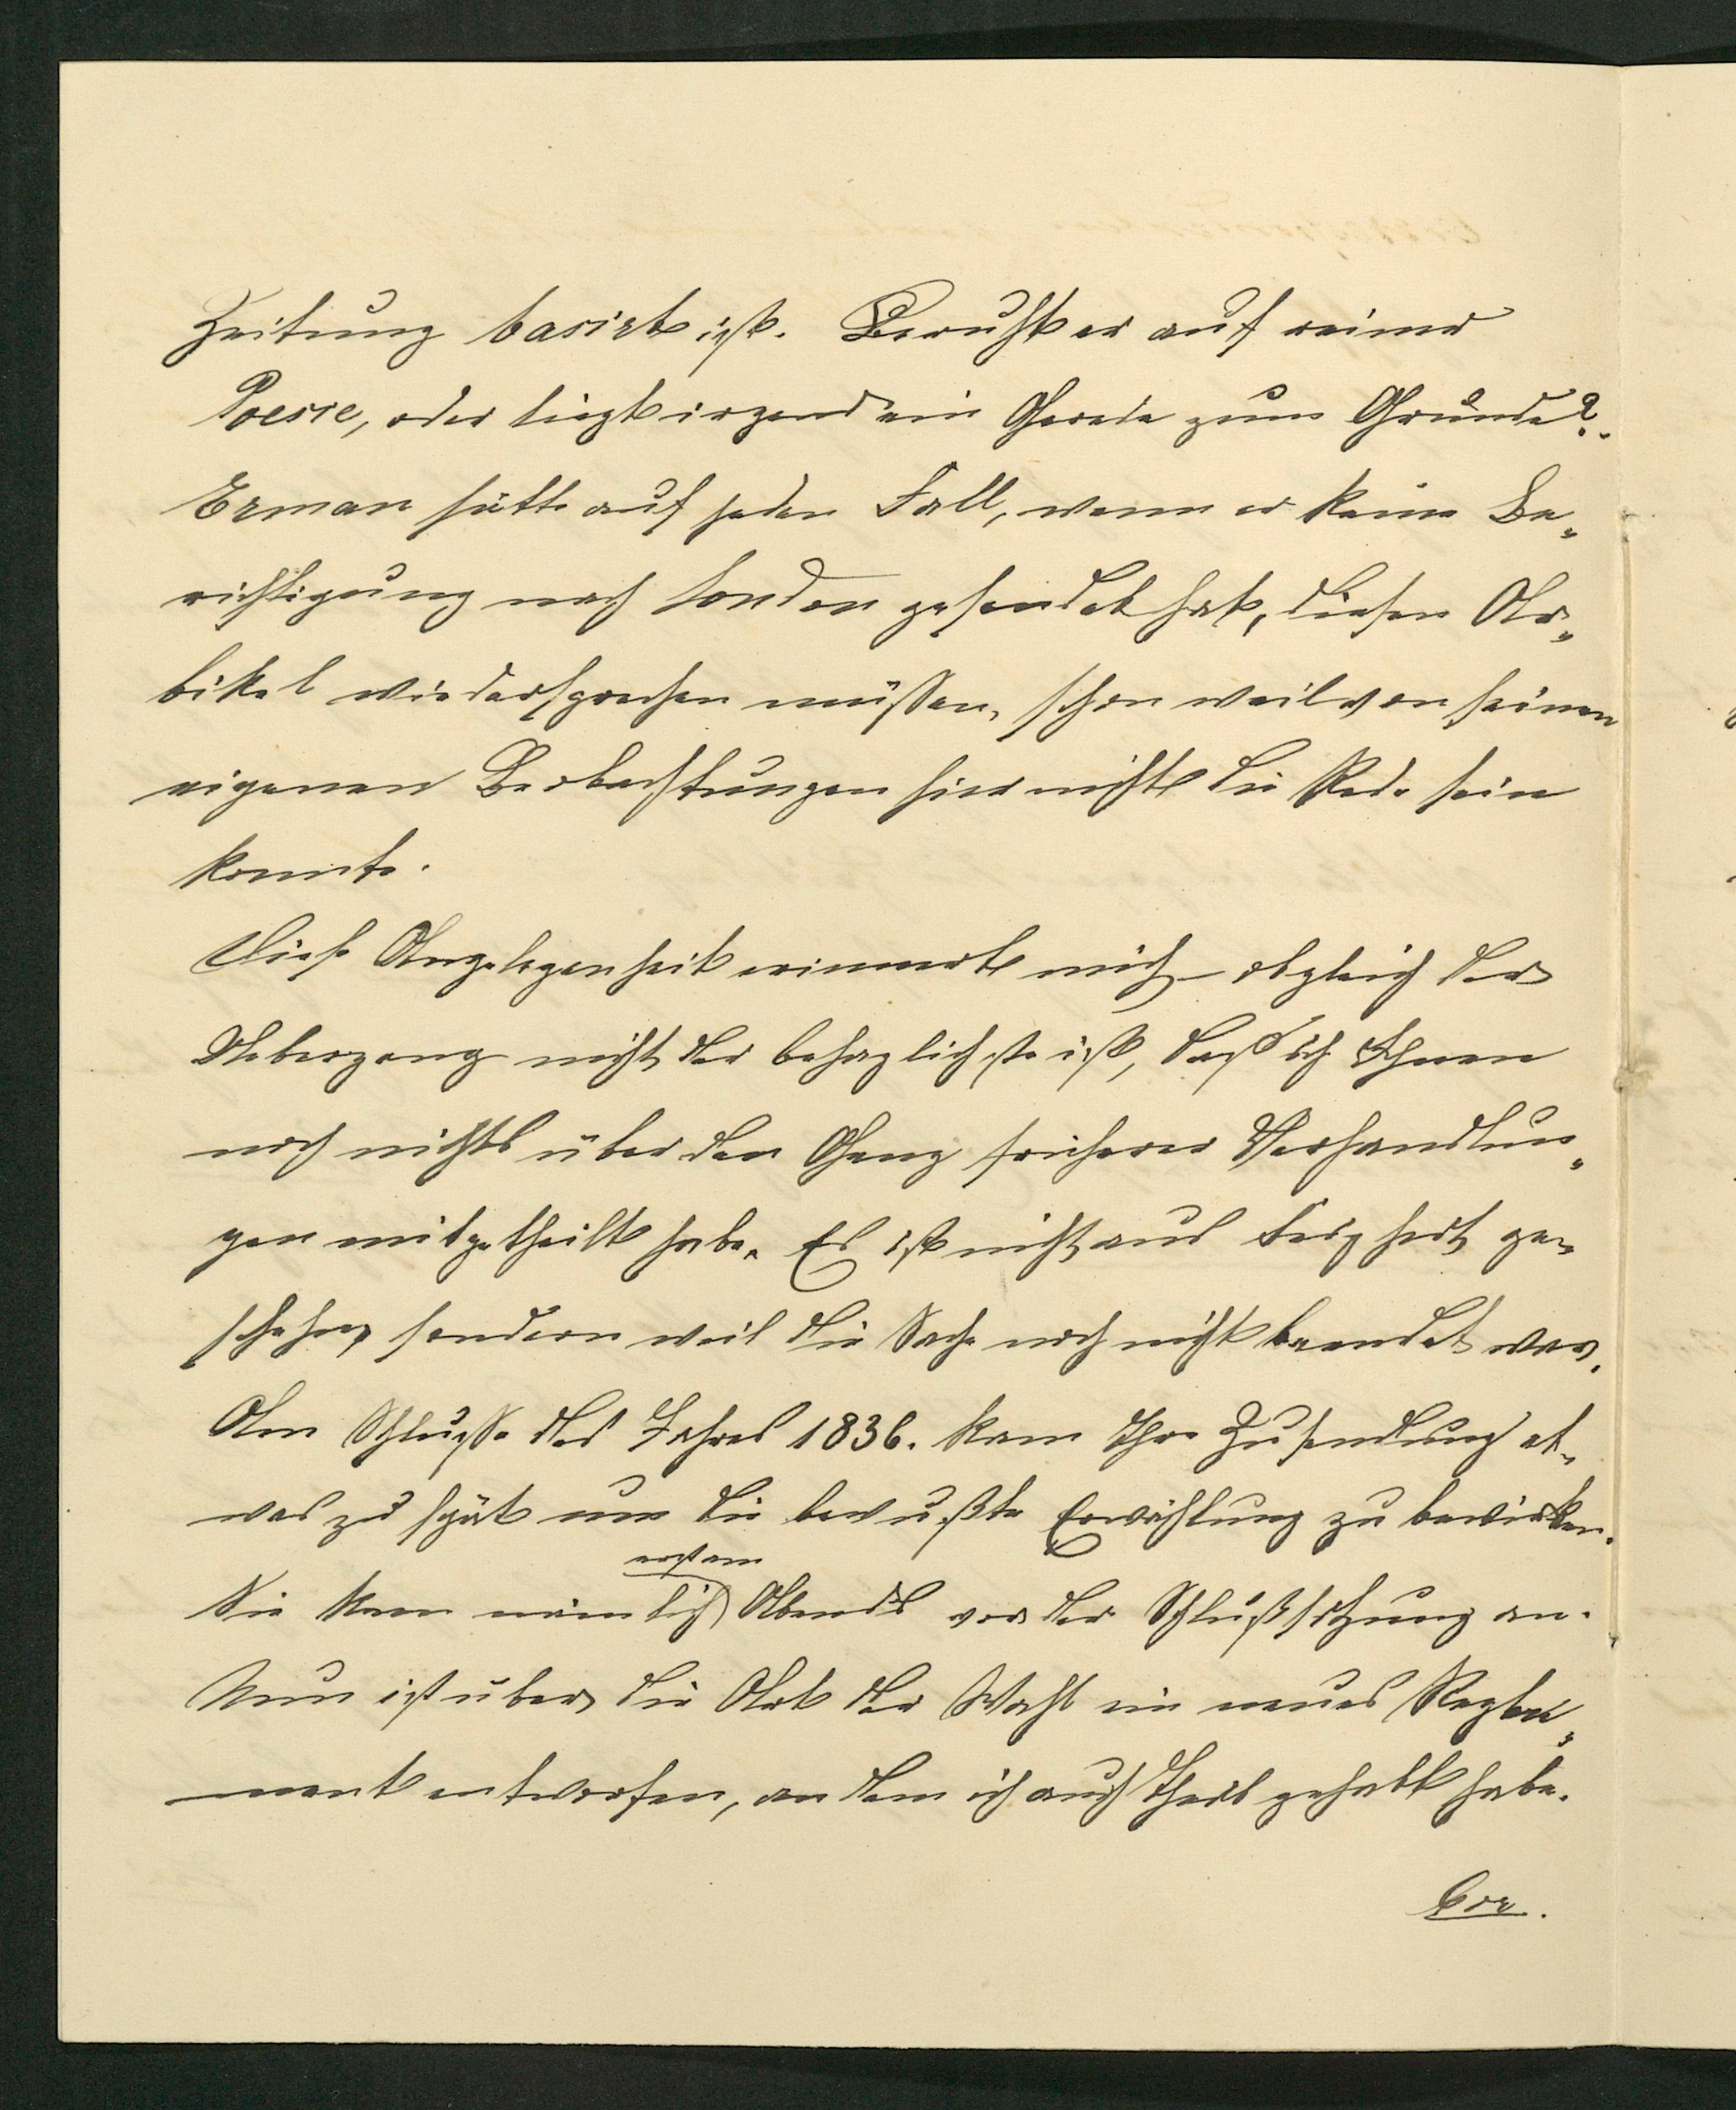 Zeitung basirt ist. Beruht er auf reiner
Poesie, oder liegt irgend ein Gerede zum Grunde?
Erman hätte auf jeden Fall, wenn er keine Be„
richtigung nach London gesendet hat, diesen Ar„
tikel wiedersprechen müssen, schon weil von seinen
eigenen Beobachtungen hier nicht die Rede sein
konnte.
Diese Angelegenheit erinnert mich, obgleich der
Uebergang nicht der behaglichste ist, daß ich Ihnen
noch nichts über den Gang früherer Verhandlun„
gen mitgetheilt habe. Es ist nicht aus Feigheit ge„
schehen, sondern weil die Sache noch nicht beendet war.
Am Schlusse des Jahres 1836. kam Ihre Zusendung et„
was zu spät um die bewußte Erwählung zu bewirken.
erst am
Sie kam nämlich Abends vor der Schlußsitzung an.
Nun ist über die Art der Wahl ein neues Regle„
ment entworfen, an dem ich auch Theil gehabt habe.
Cor.